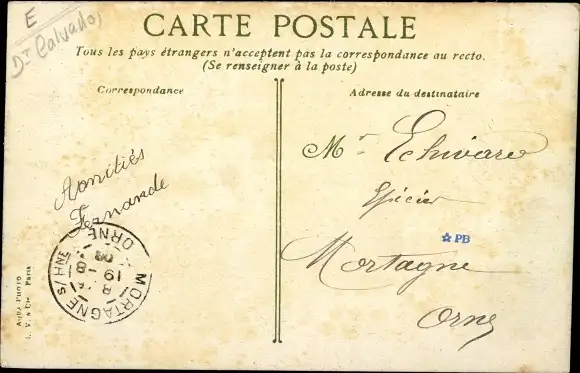 E
Dt Calvados
CARTE POSTALE
Tous les pays étrangers n'acceptent pas la correspondance au recto.
(Se renseigner à la poste)
Correspondance
Adresse du destinataire
Amitiés
Fernande
Mr Echivard
Epicier
Mortagne
Orne
☆ PB
MORTAGNE S/HNE
ORNE
19-8
08
AQUA-PHOTO
L. V. & Cie. Paris